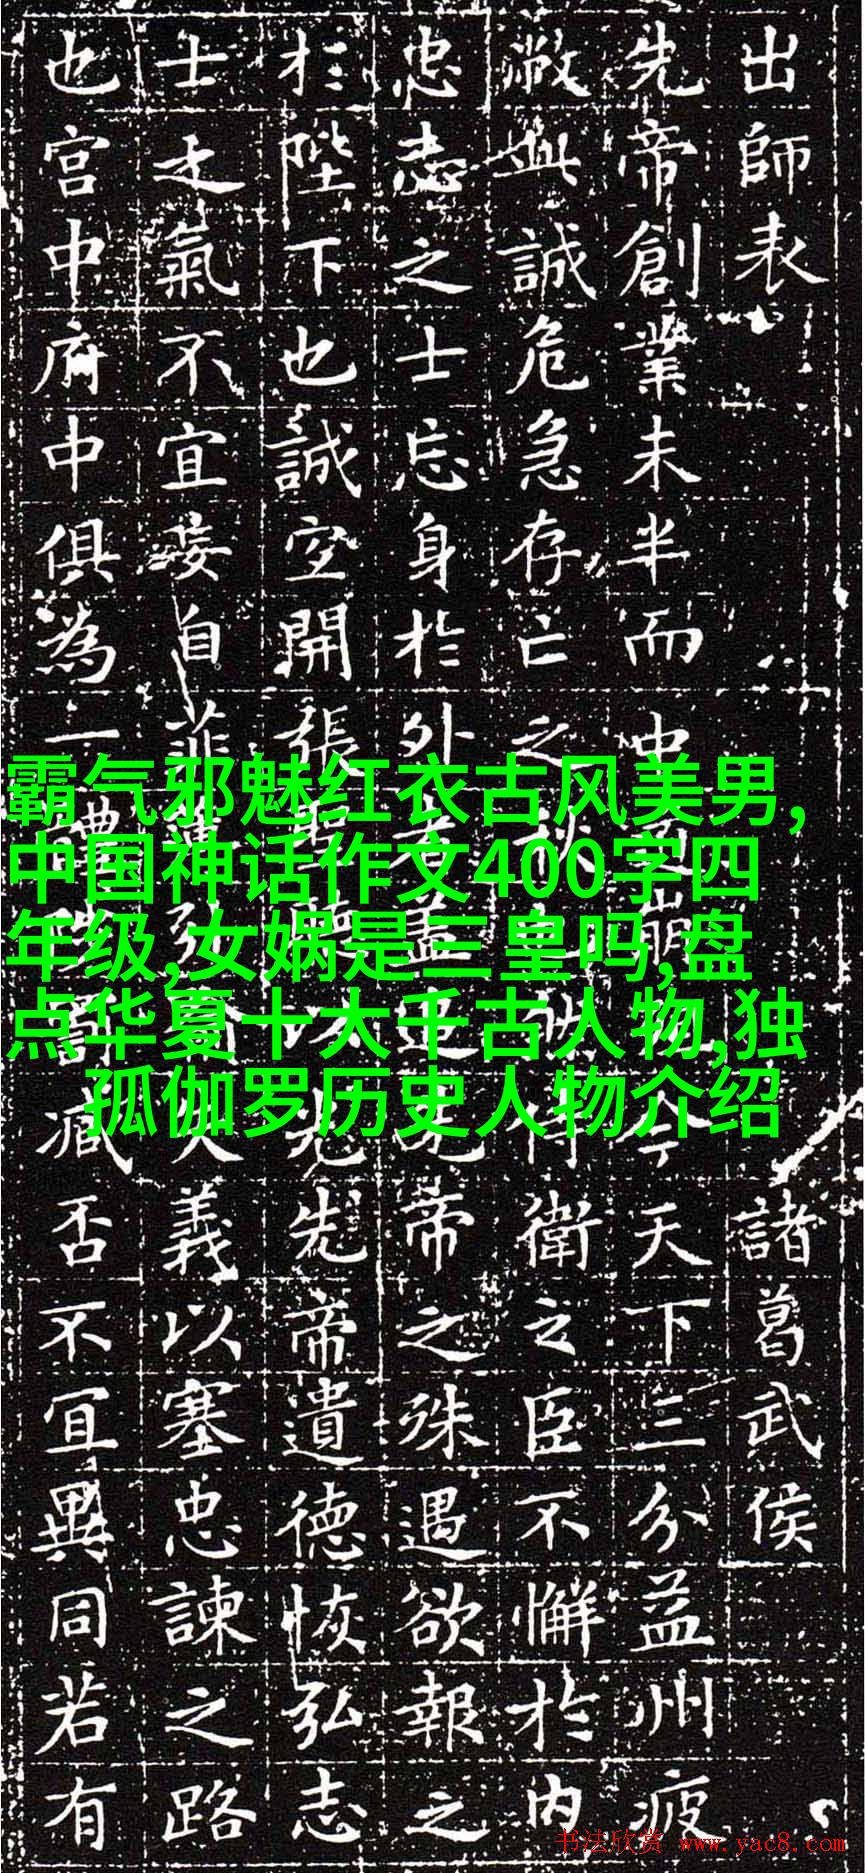 出師表 諸葛武侯
先帝創業未半而中道崩今天下三分益州疲
敝此誠危急存亡之秋也侍衛之臣不懈於內
忠志之士忘身於外者蓋追先帝之殊遇欲報之
於陛下也誠宜開張聖聽以光先帝遺德恢弘志
士之氣不宜妄自菲薄引喻失義以塞忠諫之路
也宮中府中俱為一體陟罰臧否不宜異同若有
霸气邪魅红衣古风美男,
中国神话作文400字四
年级,女娲是三皇吗,盘
点华夏十大千古人物,独
孤伽罗历史人物介绍
书法欣赏 www.yac8.com